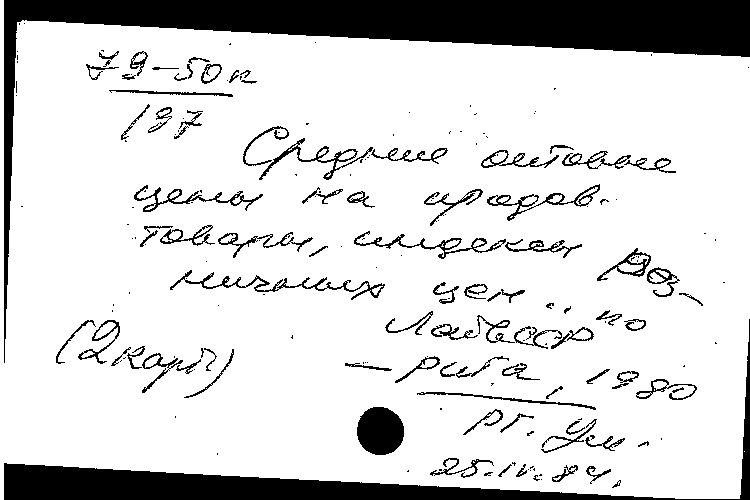 79-50к
197
Средние оптовые
цены на продов.
товары, индексы роз-
ничных цен .. по
ЛатвССР
(2 карт)
— Рига, 1980
рг. Ум.
25.IV.84.